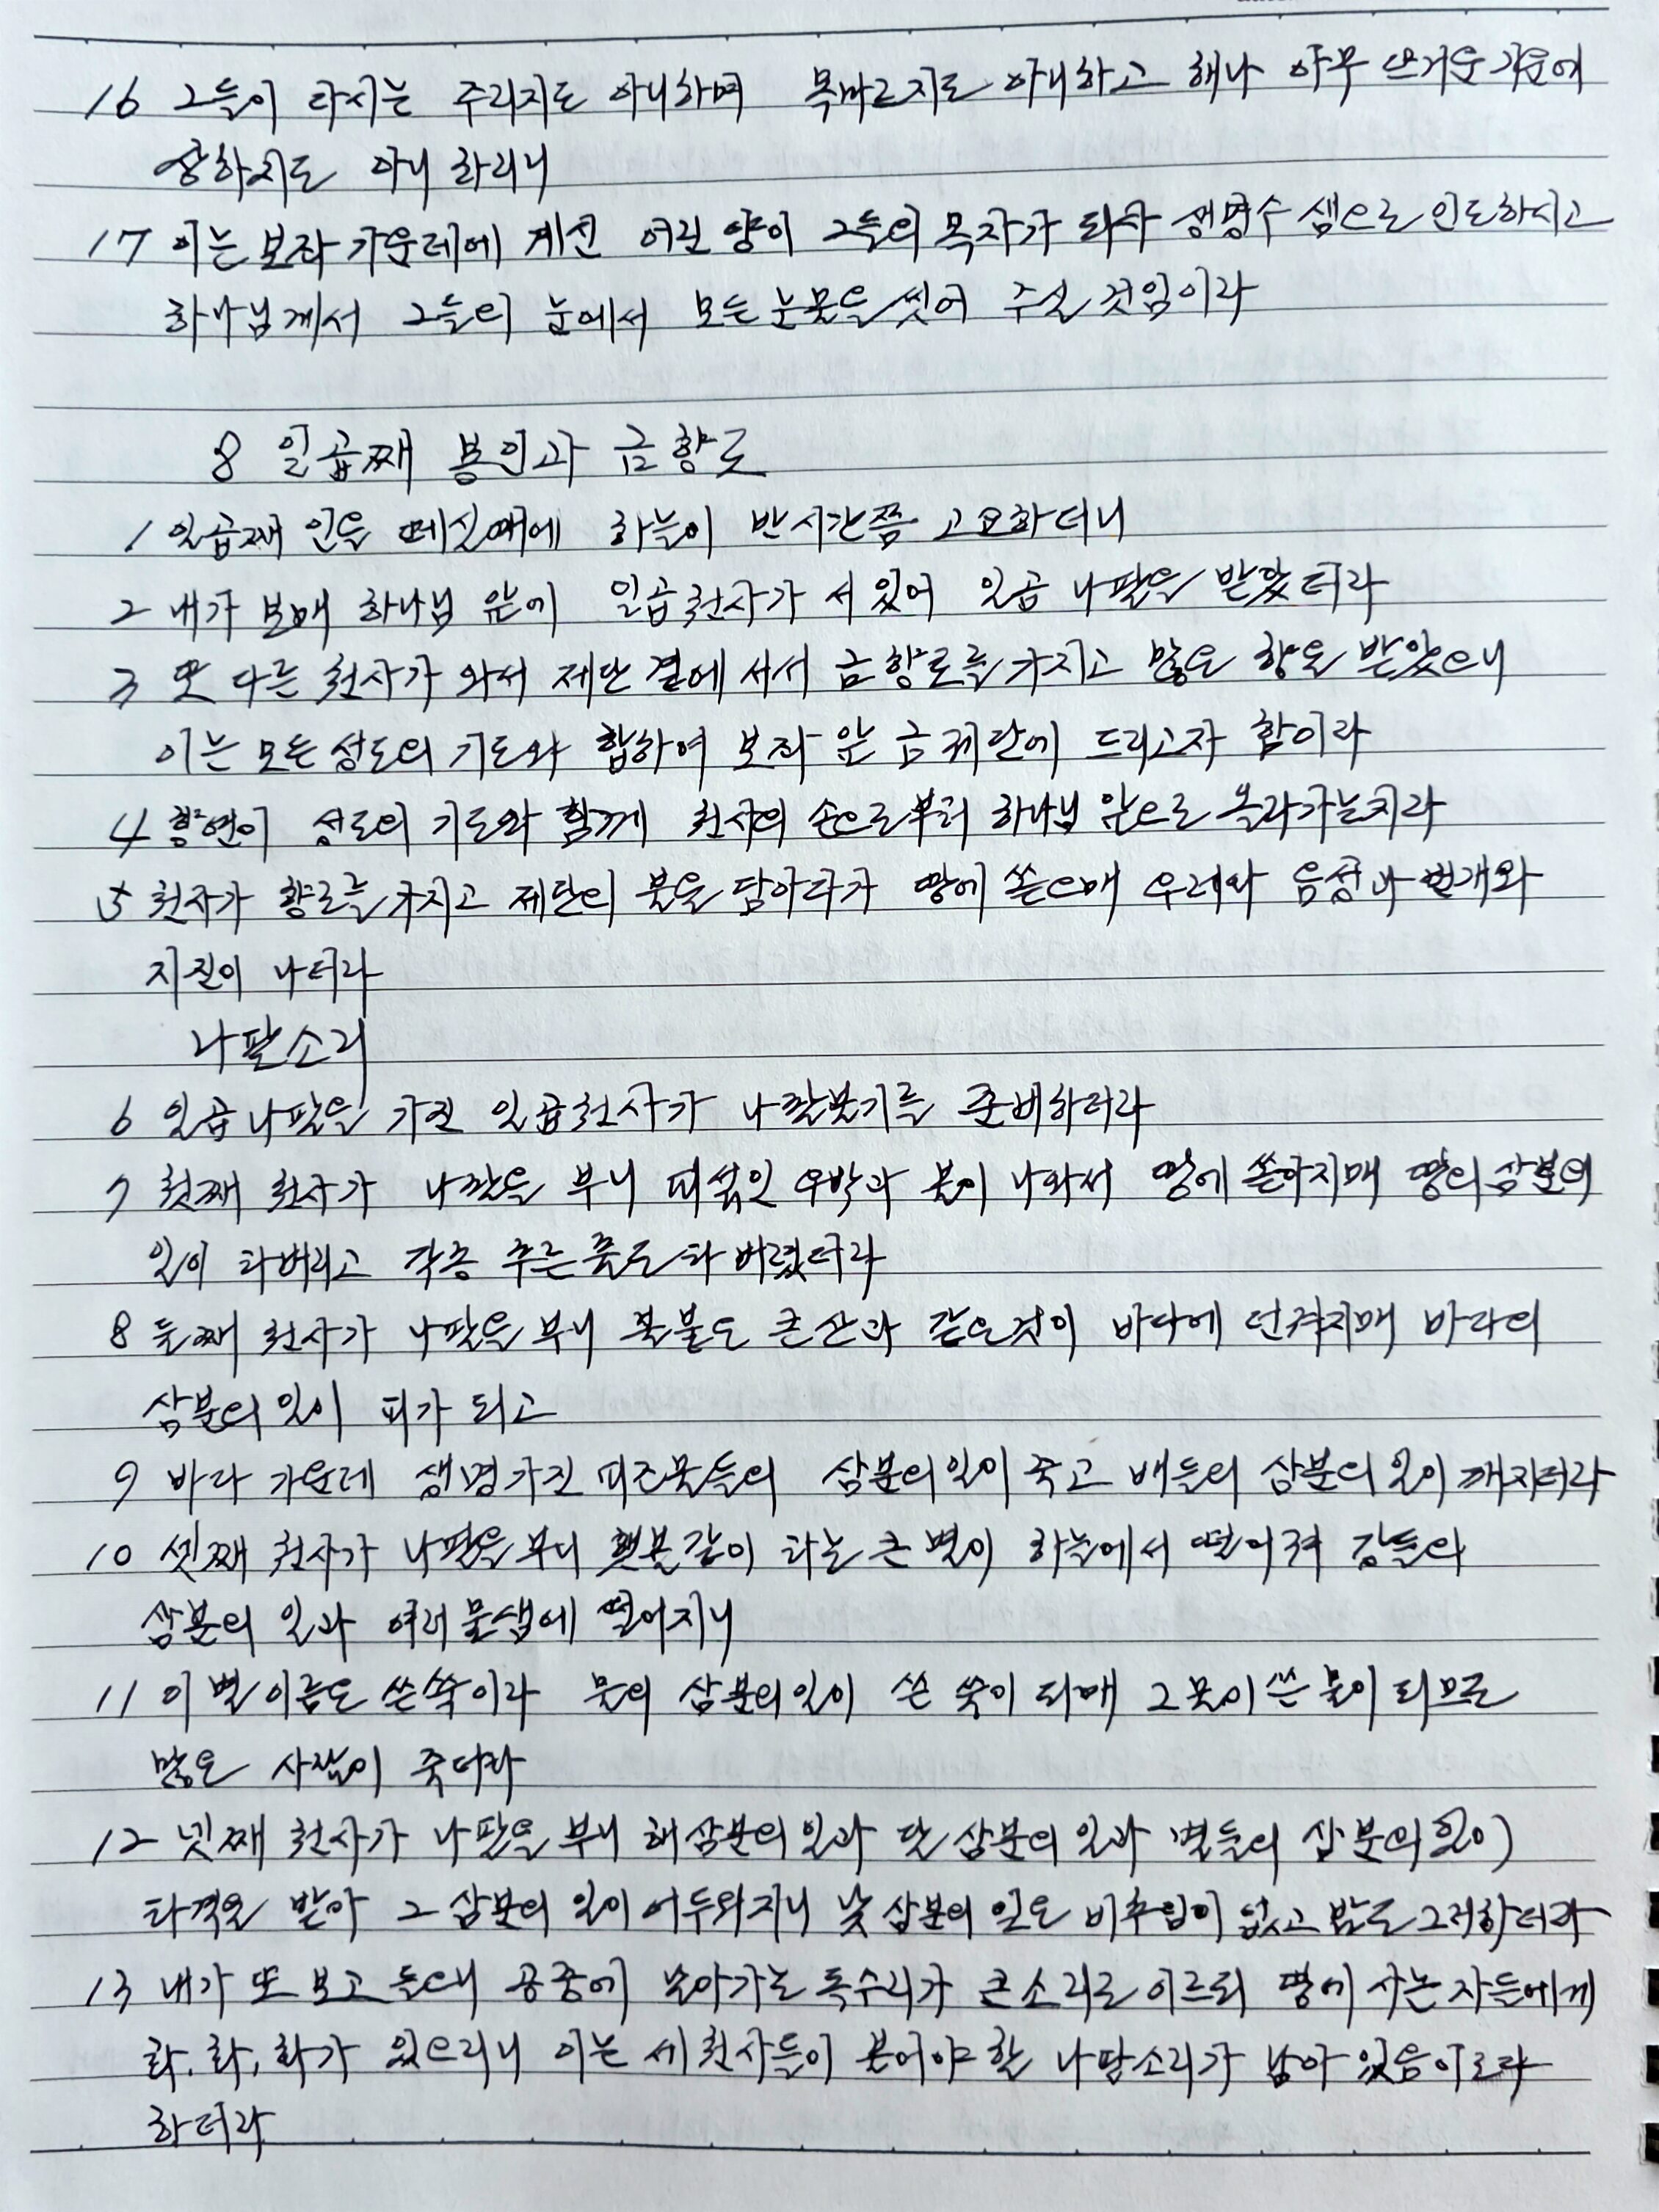 16 그들이 다시는 주리지도 아니하며 목마르지도 아니하고 해나 아무 뜨거운 기운에
상하지도 아니 하리니
17 이는 보좌 가운데에 계신 어린 양이 그들의 목자가 되사 생명수 샘으로 인도하시고
하나님께서 그들의 눈에서 모든 눈물을 씻어 주실 것임이라
8 일곱째 봉인과 금향로
1 일곱째 인을 떼실때에 하늘이 반시간쯤 고요하더니
2 내가 보매 하나님 앞에 일곱천사가 서 있어 일곱 나팔을 받았더라
3 또 다른 천사가 와서 제단 곁에 서서 금향로를 가지고 많은 향을 받았으니
이는 모든 성도의 기도와 합하여 보좌 앞 금제단에 드리고자 함이라
4 향연이 성도의 기도와 함께 천사의 손으로부터 하나님 앞으로 올라가는지라
5 천사가 향로를 가지고 제단의 불을 담아다가 땅에 쏟으매 우레와 음성과 번개와
지진이 나더라
나팔소리
6 일곱나팔을 가진 일곱천사가 나팔불기를 준비하더라
7 첫째 천사가 나팔을 부니 피섞인 우박과 불이 나와서 땅에 쏟아지매 땅의 삼분의
일이 타버리고 각종 푸른 풀도 타 버렸더라
8 둘째 천사가 나팔을 부니 불붙는 큰산과 같은것이 바다에 던져지매 바다의
삼분의 일이 피가 되고
9 바다 가운데 생명가진 피조물들의 삼분의일이 죽고 배들의 삼분의 일이 깨지더라
10 셋째 천사가 나팔을 부니 횃불같이 타는 큰 별이 하늘에서 떨어져 강들의
삼분의 일과 여러 물샘에 떨어지니
11 이 별 이름은 쓴쑥이라 물의 삼분의일이 쓴 쑥이 되매 그 물이 쓴 물이 되므로
많은 사람이 죽더라
12 넷째 천사가 나팔을 부니 해 삼분의 일과 달 삼분의 일과 별들의 삼분의 일이
타격을 받아 그 삼분의 일이 어두워지니 낮 삼분의 일은 비추임이 없고 밤도 그러하더라
13 내가 또 보고 들으니 공중에 날아가는 독수리가 큰소리로 이르되 땅에 사는 자들에게
화, 화, 화가 있으리니 이는 세 천사들이 불어야 할 나팔소리가 남아 있음이로다
하더라